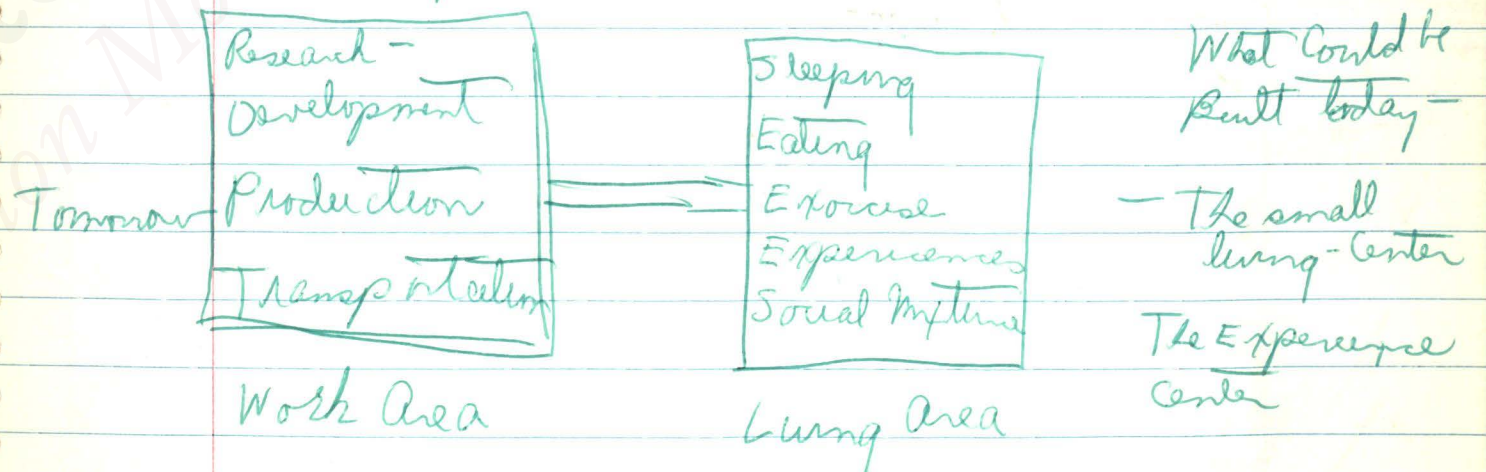 Research -
Development
Production
Transportation
Work Area
Tomorrow
Sleeping
Eating
Exercise
Experiences
Social
Living Area
What Could be
Built today -
- The small
living-Center
The Experience
Center